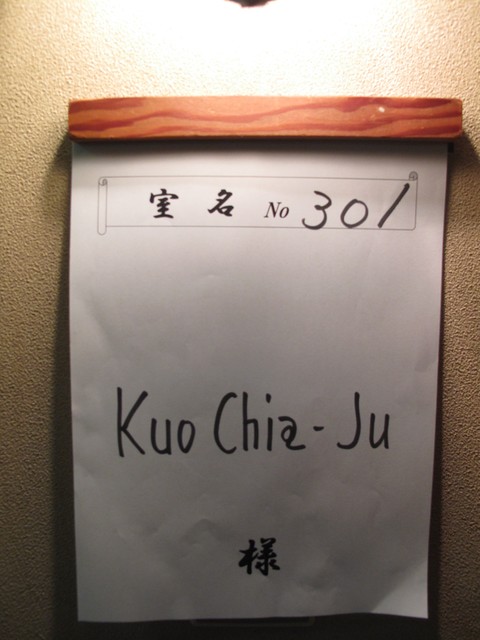 室名 No 301
Kuo Chia-Ju
様